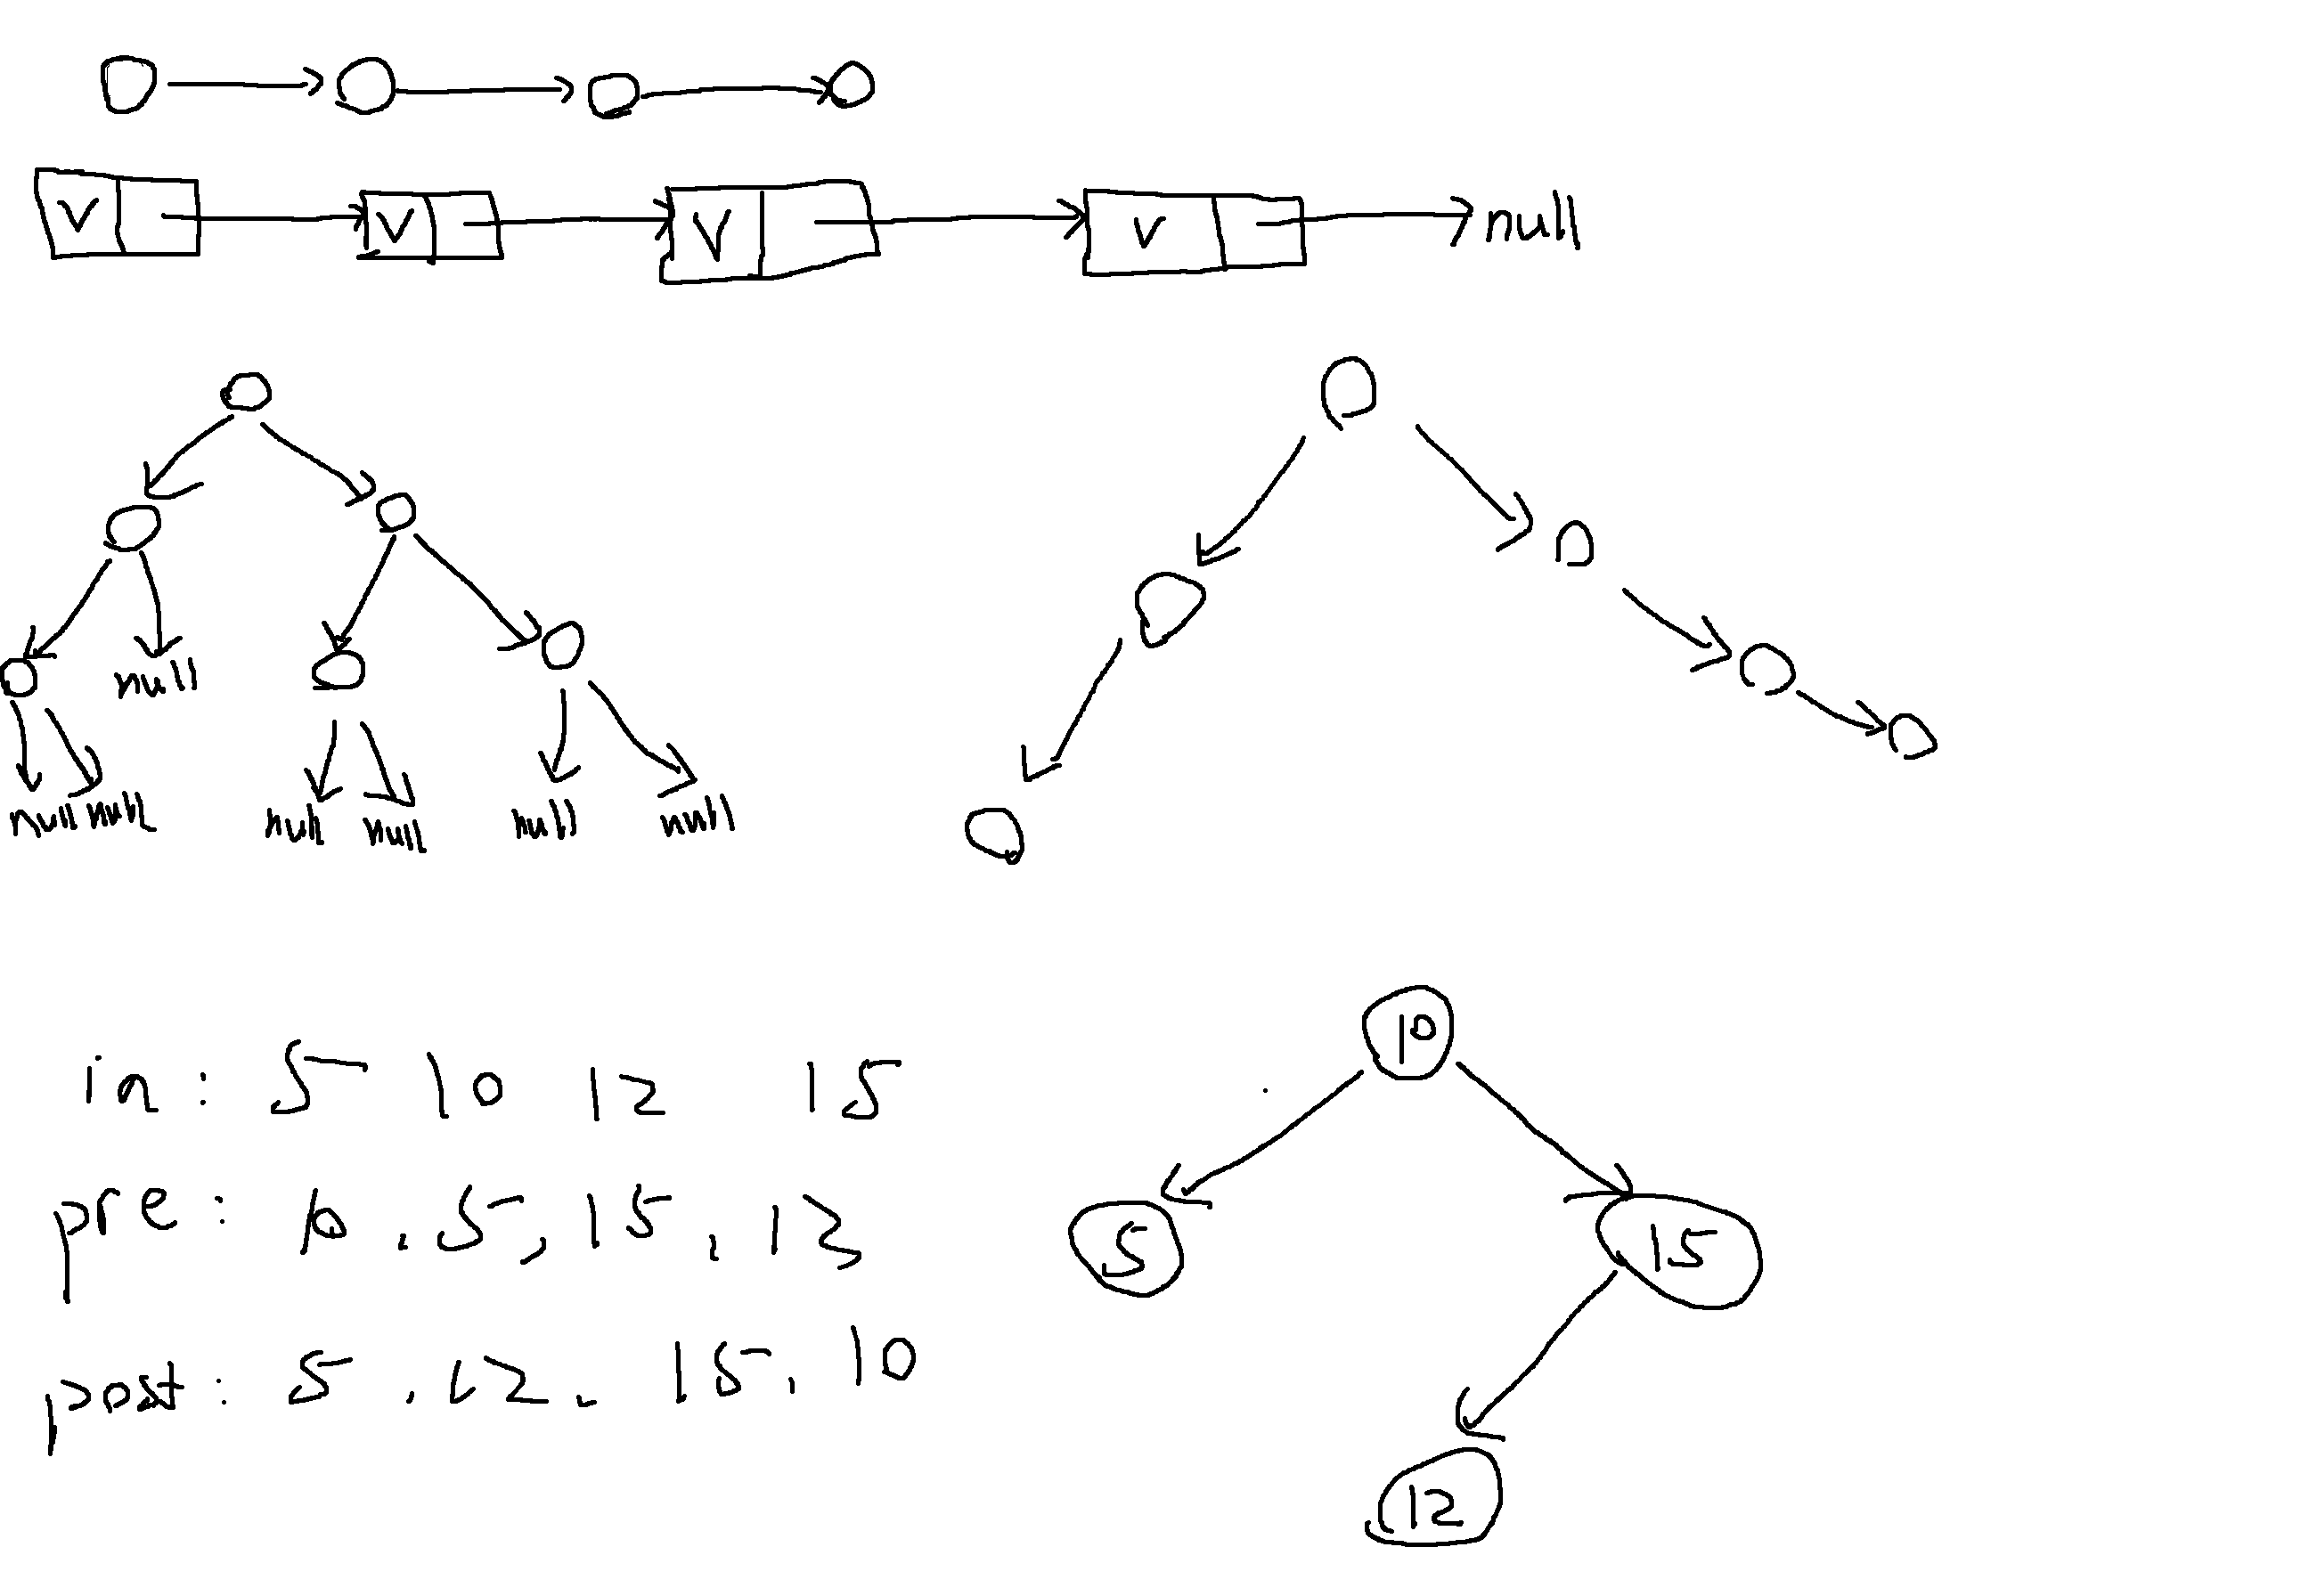 V V V V null
null
null null null null null null
10
in: 5 10 12 15
pre: 10, 5, 15, 12
5 15
post: 5, 12, 15, 10
12